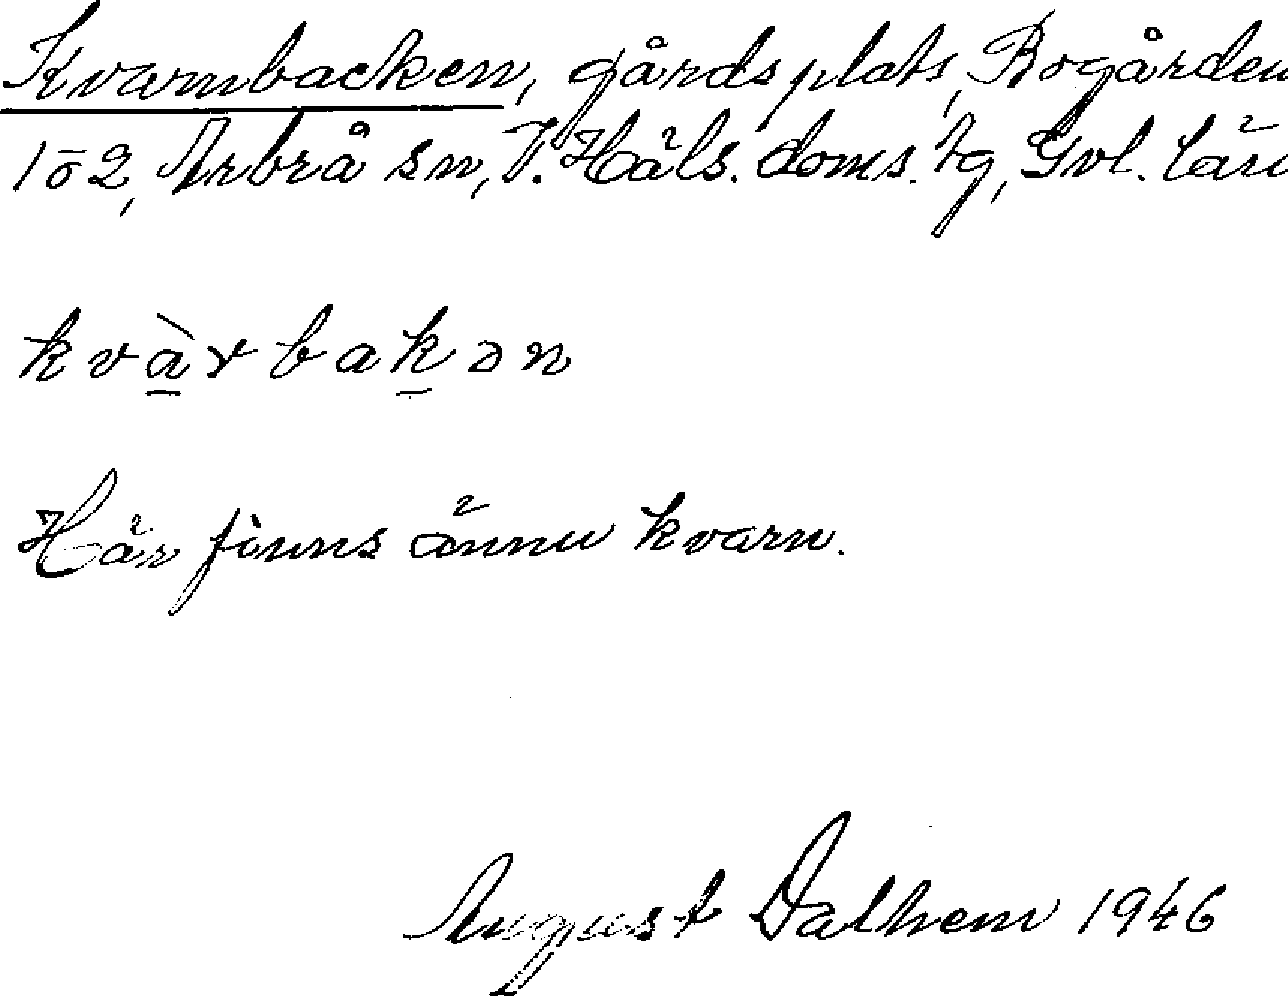 Kvarnbacken, gårdsplats, Rogården
1 o 2, Arbrå sn, V. Häls. doms. tg, Gvl. län
kvàrbakən
Här finns ännu kvarn.
August Dalhem 1946